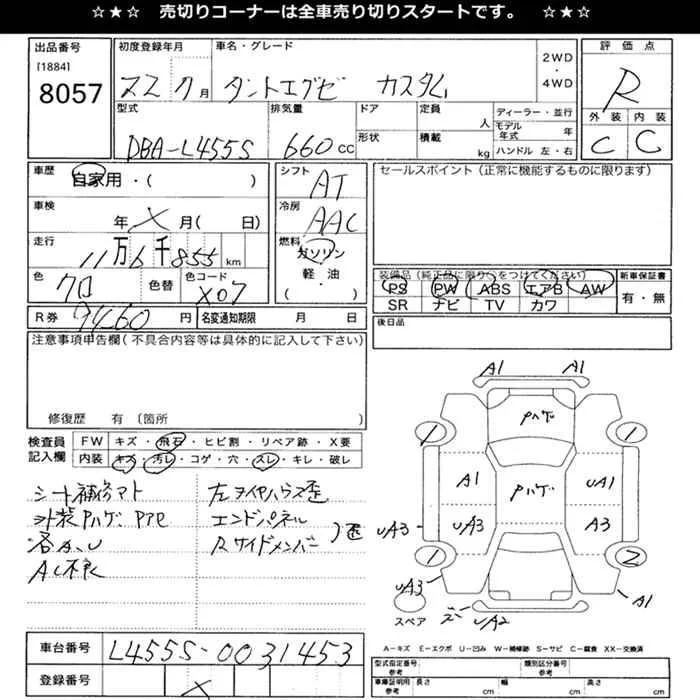 ☆★☆ 売切りコーナーは全車売り切りスタートです。 ☆★☆
出品番号
[1884]
8057
初度登録年月
22 7 月
車名・グレード
タントエグゼ カスタム
2WD
・
4WD
評価点
R
外装 内装
C C
型式
DBA-L455S
排気量
660 CC
ドア
形状
定員
人
積載
kg
ディーラー・並行
モデル
年式 年
ハンドル 左・右
車歴
自家用・( )
車検
年 X 月( 日)
走行
11万6千855 km
色
クロ
色替
色コード
X07
シフト
AT
冷房
AAC
燃料
ガソリン
軽・油
( )
セールスポイント(正常に機能するものに限ります)
装備品(純正品に限り○をつけてください)
PS PW ABS エアB AW
SR ナビ TV カワ
新車保証書
有・無
R券 9460 円
名変通知期限 月 日
後日品
注意事項申告欄(不具合内容等は具体的に記入して下さい)
修復歴 有 (箇所
検査員
記入欄
FW キズ・飛石・ヒビ割・リペア跡・X要
内装 キズ・汚レ・コゲ・穴・スレ・キレ・破レ
シート補修アト
外装Pハゲ
AC不良
左タイヤハウス歪
エンドパネル
Rサイドメンバー
A1 A1
Pハゲ
1 1
A1 Pハゲ UA1
UA3 UA3 A3
1 2
UA3 A1
スペア UA2
A-キズ E-エクボ U-凹み W-補修跡 S-サビ C-腐食 XX-交換済
車台番号
L455S-0031453
登録番号
X
型式指定番号
参考
類別区分番号
参考
車庫証明用
参考
長さ cm 幅 cm 高さ cm